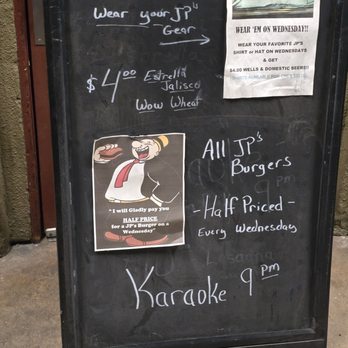 Wear your JP's
Gear
$4.00 Estrella
Jalisco
Wow Wheat
WEAR 'EM ON WEDNESDAY!!
WEAR YOUR FAVORITE JP'S
SHIRT or HAT ON WEDNESDAYS
& GET
$4.00 WELLS & DOMESTIC BEERS!!
"I will Gladly pay you
HALF PRICE
for a JP's Burger on a
Wednesday"
All JP's
Burgers
- Half Priced -
Every Wednesday
Karaoke 9 pm